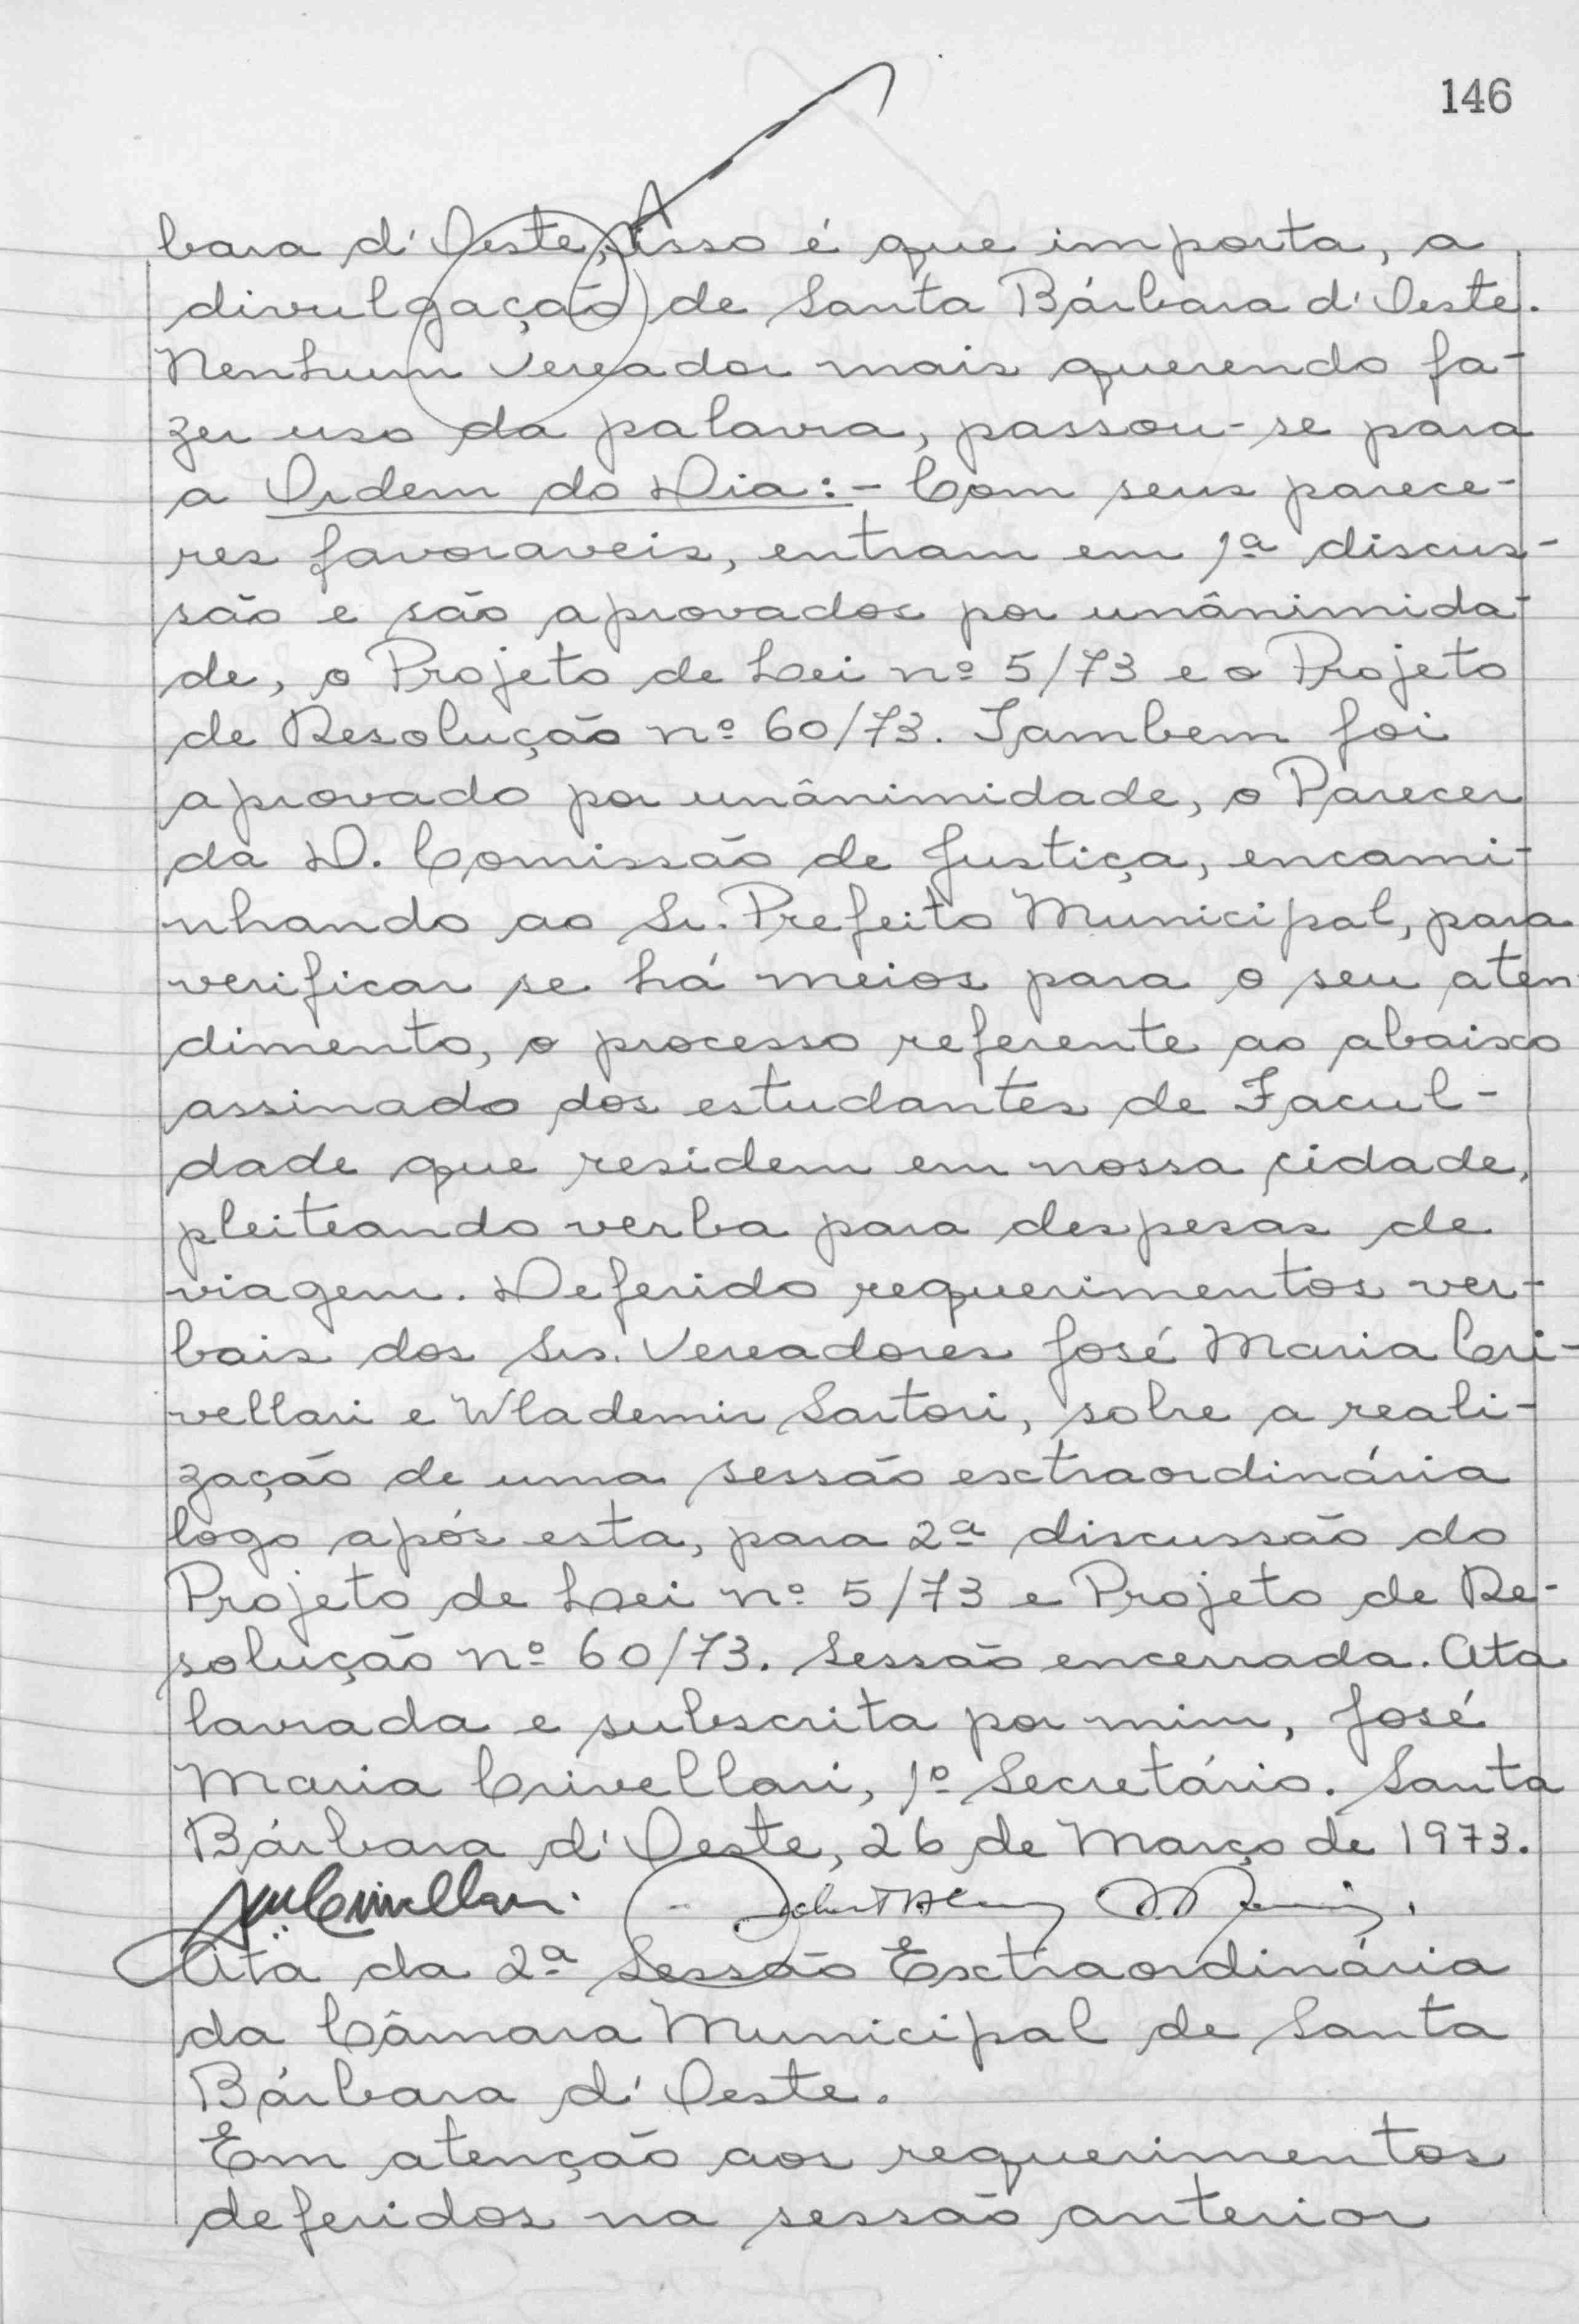 146
bara d'Oeste, isso é que importa, a
divulgação de Santa Bárbara d'Oeste.
Nenhum Vereador mais querendo fa-
zer uso da palavra, passou-se para
a Ordem do Dia:- Com seus parece-
res favoraveis, entram em 1ª discus-
são e são aprovados por unânimida-
de, o Projeto de Lei nº 5/73 e o Projeto
de Resolução nº 60/73. Tambem foi
aprovado por unânimidade, o Parecer
da D. Comissão de Justiça, encami-
nhando ao Sr. Prefeito Municipal, para
verificar se há meios para o seu aten-
dimento, o processo referente ao abaixo
assinado dos estudantes de Facul-
dade que residem em nossa cidade,
pleiteando verba para despesas de
viagem. Deferido requerimentos ver-
bais dos Srs. Vereadores José Maria Cri-
vellari e Wlademir Sartori, sobre a reali-
zação de uma sessão extraordinária
logo após esta, para 2ª discussão do
Projeto de Lei nº 5/73 e Projeto de Re-
solução nº 60/73. Sessão encerrada. Ata
lavrada e subscrita por mim, José
Maria Crivellari, 1º Secretário. Santa
Bárbara d'Oeste, 26 de Março de 1973.
JMCrivellari.
Ata da 2ª Sessão Extraordinária
da Câmara Municipal de Santa
Bárbara d'Oeste.
Em atenção aos requerimentos
deferidos na sessão anterior